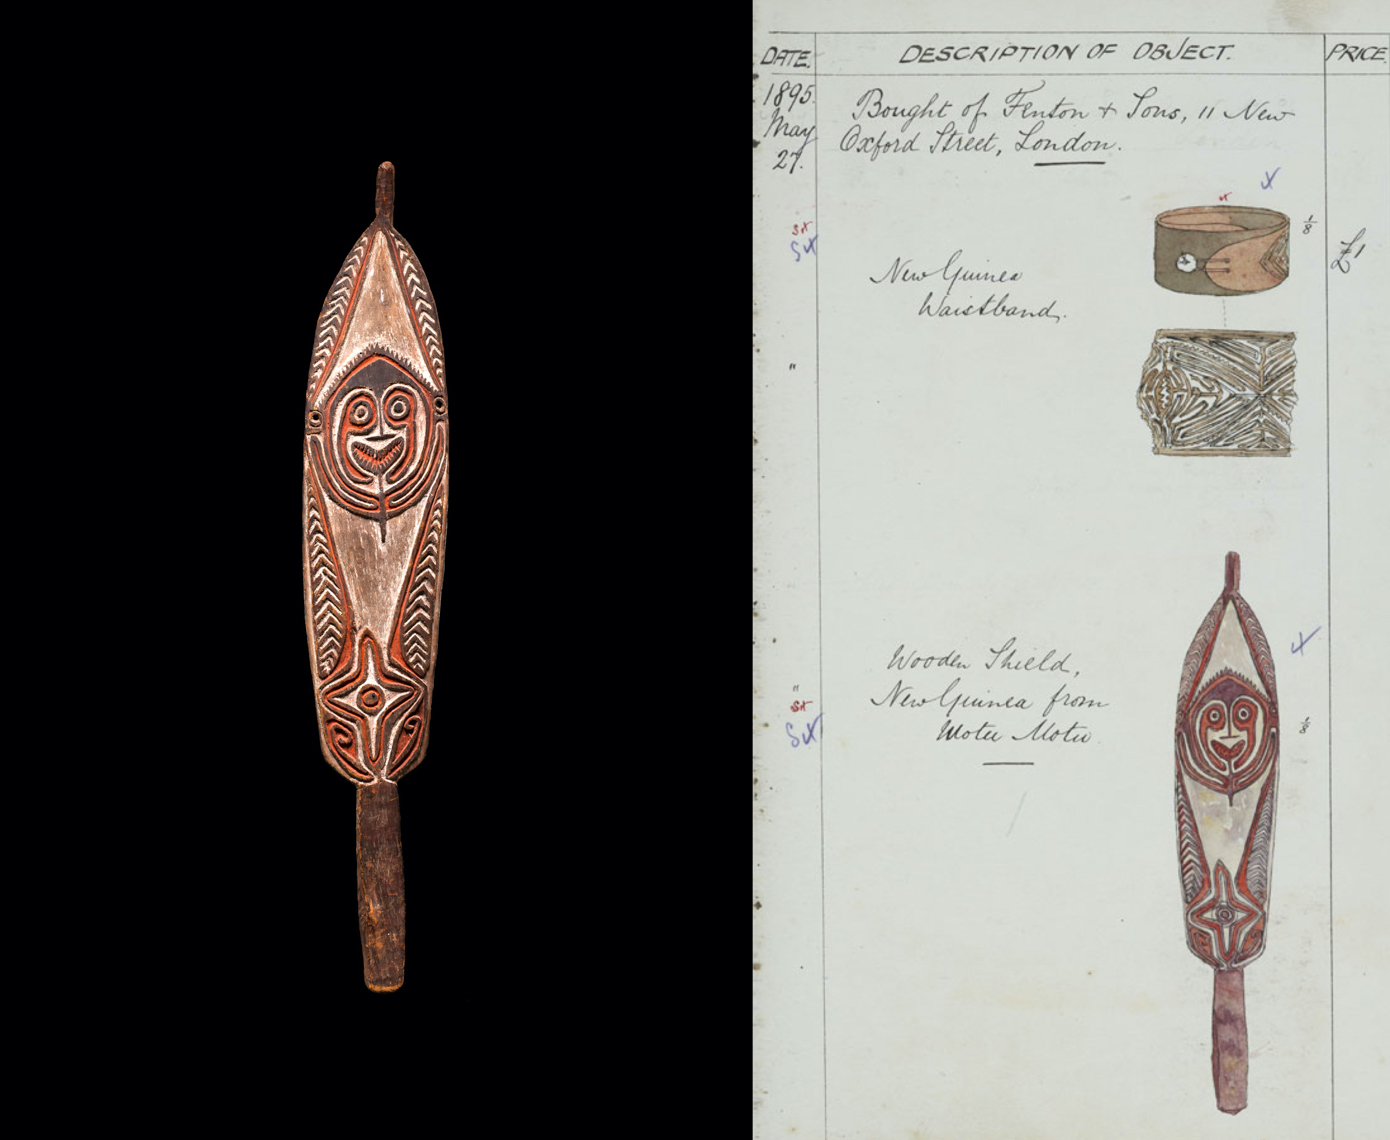 DATE. DESCRIPTION OF OBJECT. PRICE.
1895. May 27.
Bought of Fenton & Sons, 11 New
Oxford Street, London.
1/8
£1
New Guinea
Waistband.
"
Wooden Shield,
" New Guinea from
Motu Motu
1/8